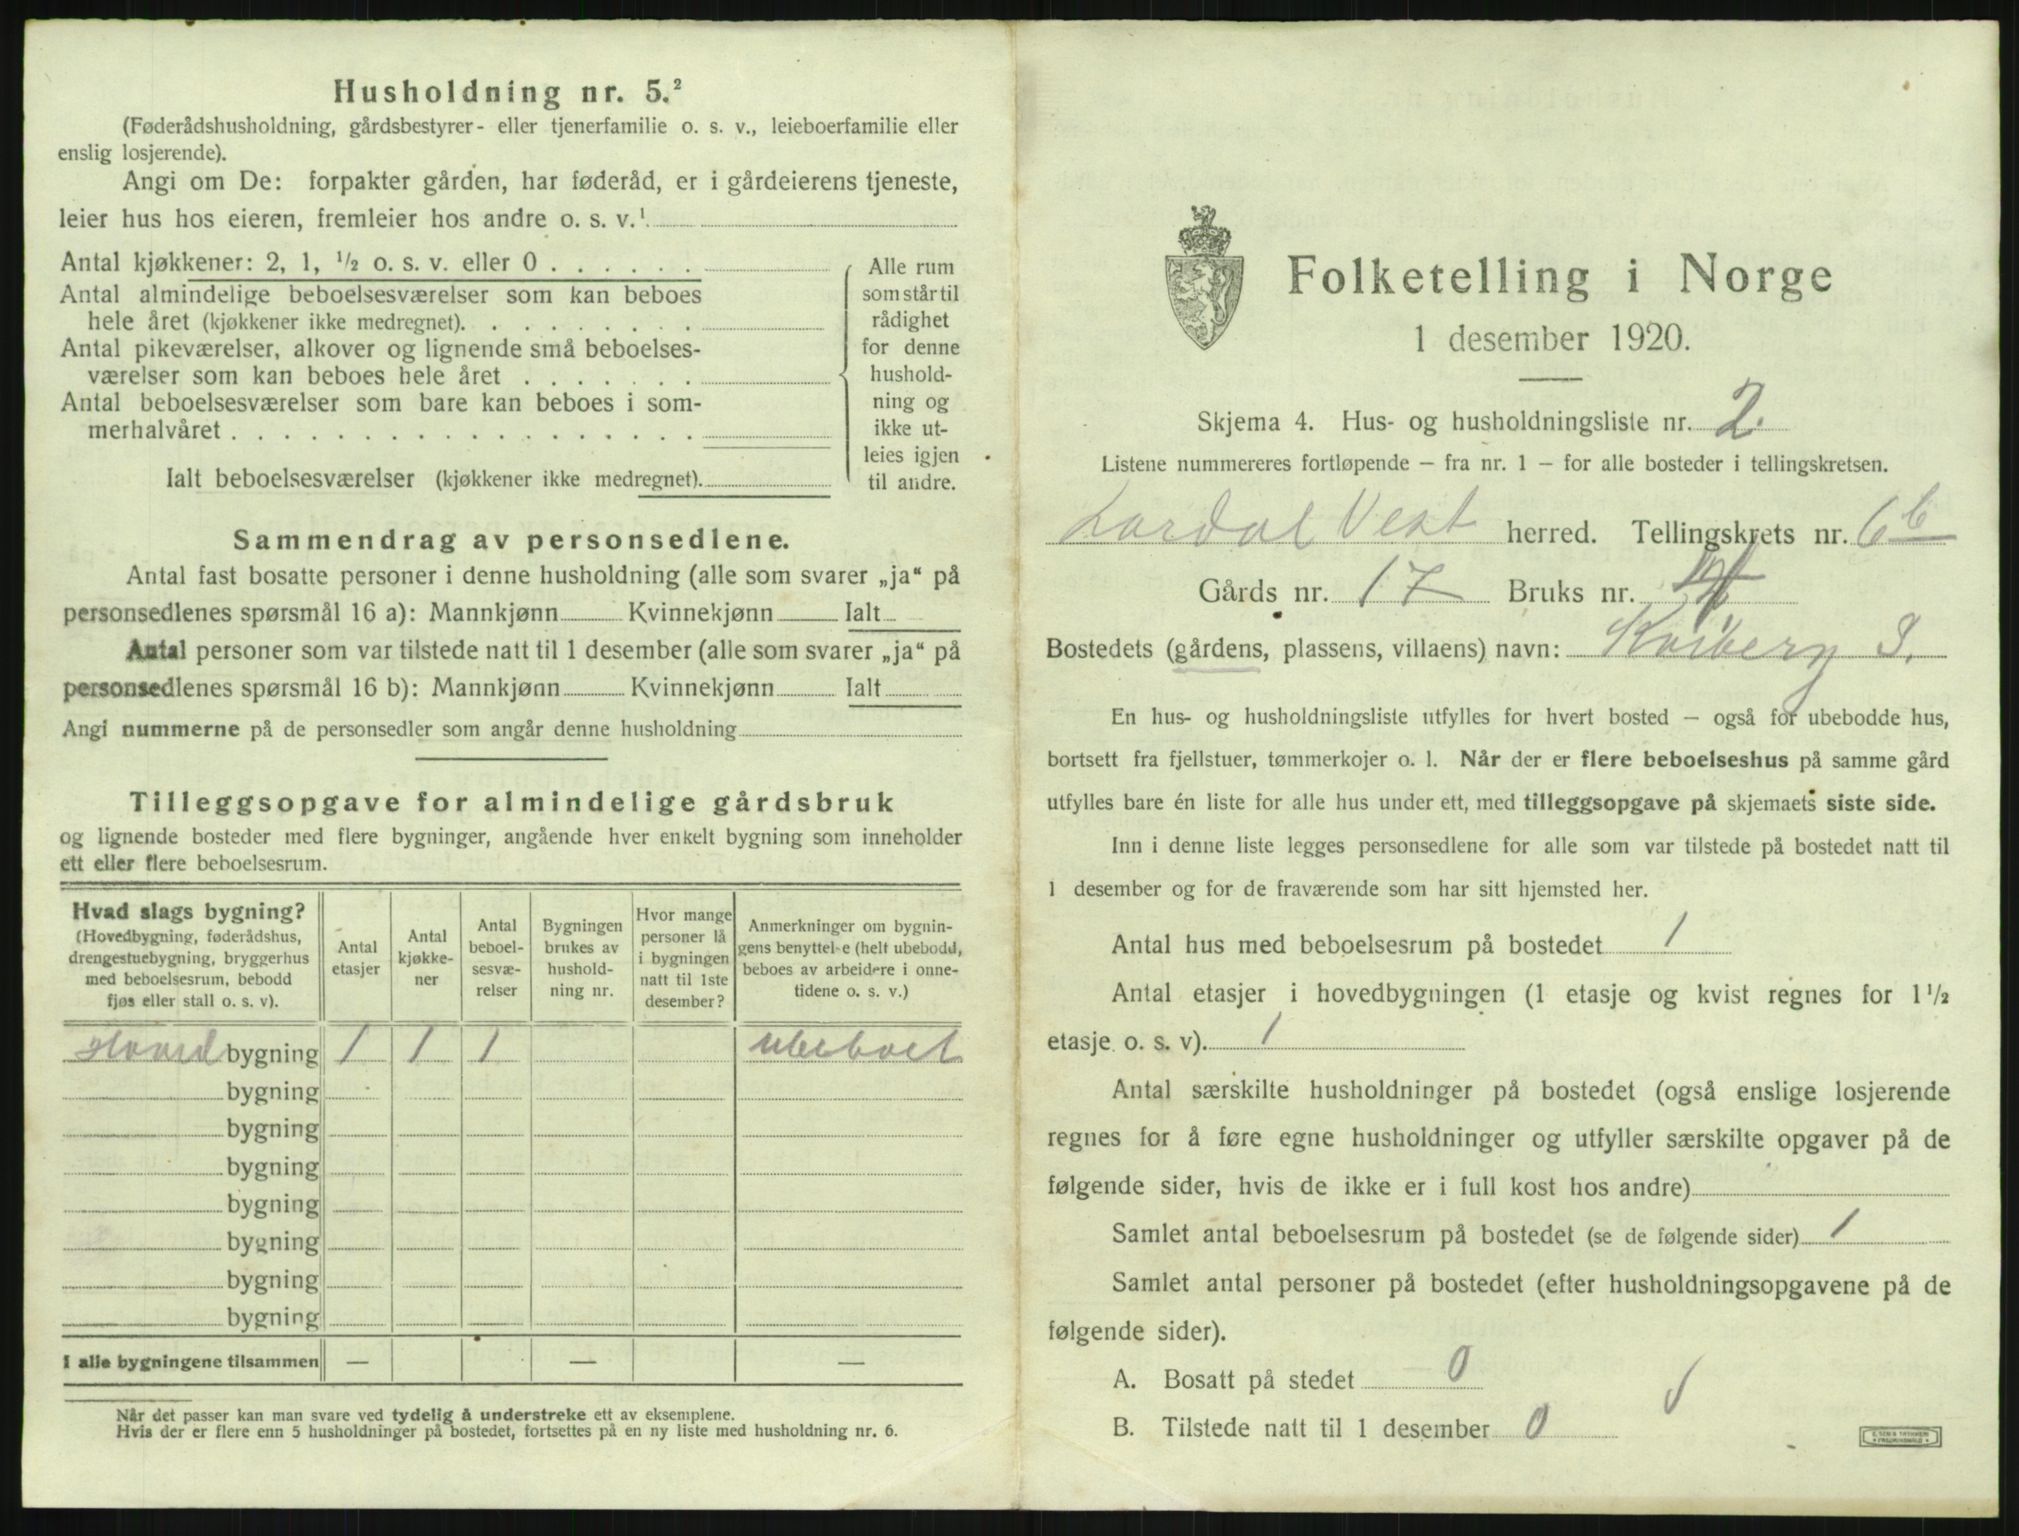 Husholdning nr. 5.²
(Føderådshusholdning, gårdsbestyrer- eller tjenerfamilie o. s. v., leieboerfamilie eller
enslig losjerende).
Angi om De: forpakter gården, har føderåd, er i gårdeierens tjeneste,
leier hus hos eieren, fremleier hos andre o. s. v.¹
Antal kjøkkener: 2, 1, ½ o. s. v. eller 0
Antal almindelige beboelsesværelser som kan beboes
hele året (kjøkkener ikke medregnet).
Antal pikeværelser, alkover og lignende små beboelses-
værelser som kan beboes hele året
Antal beboelsesværelser som bare kan beboes i som-
merhalvåret
Ialt beboelsesværelser (kjøkkener ikke medregnet).
Alle rum
som står til
rådighet
for denne
hushold-
ning og
ikke ut-
leies igjen
til andre.
Sammendrag av personsedlene.
Antal fast bosatte personer i denne husholdning (alle som svarer „ja“ på
personsedlenes spørsmål 16 a): Mannkjønn Kvinnekjønn Ialt
Antal personer som var tilstede natt til 1 desember (alle som svarer „ja“ på
personsedlenes spørsmål 16 b): Mannkjønn Kvinnekjønn Ialt
Angi nummerne på de personsedler som angår denne husholdning
Tilleggsopgave for almindelige gårdsbruk
og lignende bosteder med flere bygninger, angående hver enkelt bygning som inneholder
ett eller flere beboelsesrum.
Hvad slags bygning?
(Hovedbygning, føderådshus,
drengestuebygning, bryggerhus
med beboelsesrum, bebodd
fjøs eller stall o. s. v).
Antal
etasjer
Antal
kjøkke-
ner
Antal
beboel-
sesvæ-
relser
Bygningen
brukes av
hushold-
ning nr.
Hvor mange
personer lå
i bygningen
natt til 1ste
desember?
Anmerkninger om bygnin-
gens benyttelse (helt ubebodd,
beboes av arbeidere i onne-
tidene o. s. v.)
Hoved bygning 1 1 1 ubeboet
bygning
bygning
bygning
bygning
bygning
bygning
bygning
I alle bygningene tilsammen — — —
Når det passer kan man svare ved tydelig å understreke ett av eksemplene.
Hvis der er flere enn 5 husholdninger på bostedet, fortsettes på en ny liste med husholdning nr. 6.
Folketelling i Norge
1 desember 1920.
Skjema 4. Hus- og husholdningsliste nr. 2.
Listene nummereres fortløpende – fra nr. 1 – for alle bosteder i tellingskretsen.
Lardal Vest herred. Tellingskrets nr. 6 b
Gårds nr. 17 Bruks nr.
Bostedets (gårdens, plassens, villaens) navn: S.
En hus- og husholdningsliste utfylles for hvert bosted – også for ubebodde hus,
bortsett fra fjellstuer, tømmerkojer o. l. Når der er flere beboelseshus på samme gård
utfylles bare én liste for alle hus under ett, med tilleggsopgave på skjemaets siste side.
Inn i denne liste legges personsedlene for alle som var tilstede på bostedet natt til
1 desember og for de fraværende som har sitt hjemsted her.
Antal hus med beboelsesrum på bostedet 1
Antal etasjer i hovedbygningen (1 etasje og kvist regnes for 1½
etasje o. s. v). 1
Antal særskilte husholdninger på bostedet (også enslige losjerende
regnes for å føre egne husholdninger og utfyller særskilte opgaver på de
følgende sider, hvis de ikke er i full kost hos andre)
Samlet antal beboelsesrum på bostedet (se de følgende sider) 1
Samlet antal personer på bostedet (efter husholdningsopgavene på de
følgende sider).
A. Bosatt på stedet 0
B. Tilstede natt til 1 desember 0